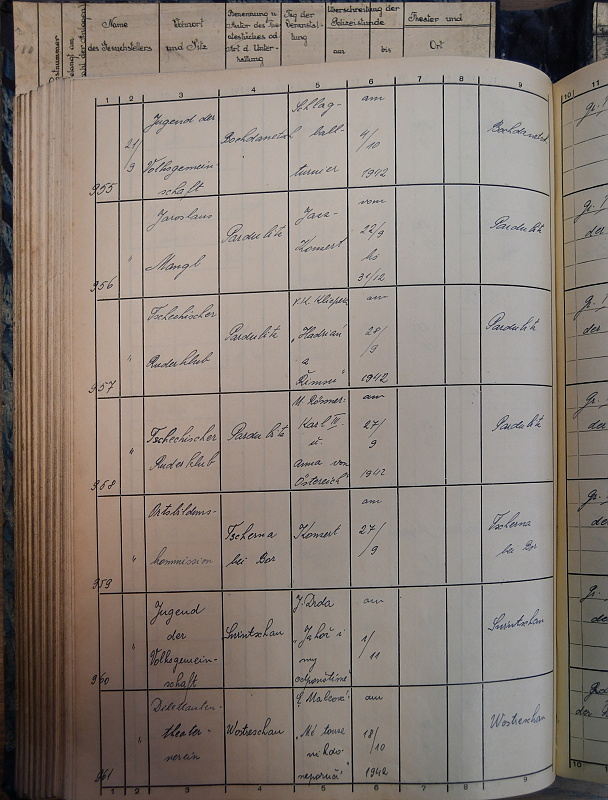 Name
des Gesuchstellers
Wohnort
und Sitz
Benennung u.
Autor des Thea-
terstückes od
Art d. Unter-
haltung
Tag der
Veranstal-
tung
Überschreitung der
Polizeistunde
aus
bis
Theater und
Ort
1 2 3 4 5 6 7 8 9 10 11
955 21/9 Jugend der Volksgemein- schaft Bochdanetsch Schlag- ball- turnier am 4/10 1942 Bochdanetsch
956 " Jaroslaus Mangl Pardubitz Jazz- Konzert vom 22/9 bis 31/12 Pardubitz
957 " Tschechischer Ruderklub Pardubitz "Hadrián a Římsů" am 28/9 1942 Pardubitz
958 " Tschechischer Ruderklub Pardubitz M. Rössner: Karl III. u. Anna von Österreich" am 27/9 1942 Pardubitz
959 " Ortsbildungs- kommission Tscherna bei Bor Konzert am 27/9 Tscherna bei Bor
960 " Jugend der Volksgemein- schaft Smrintschau J. Drda "Jakož i my odpouštíme" am 1/11 Smrintschau
961 " Dilettanten- theater- verein Wostreschau am 18/10 1942 Wostreschau
1 2 3 4 5 6 7 8 9 10